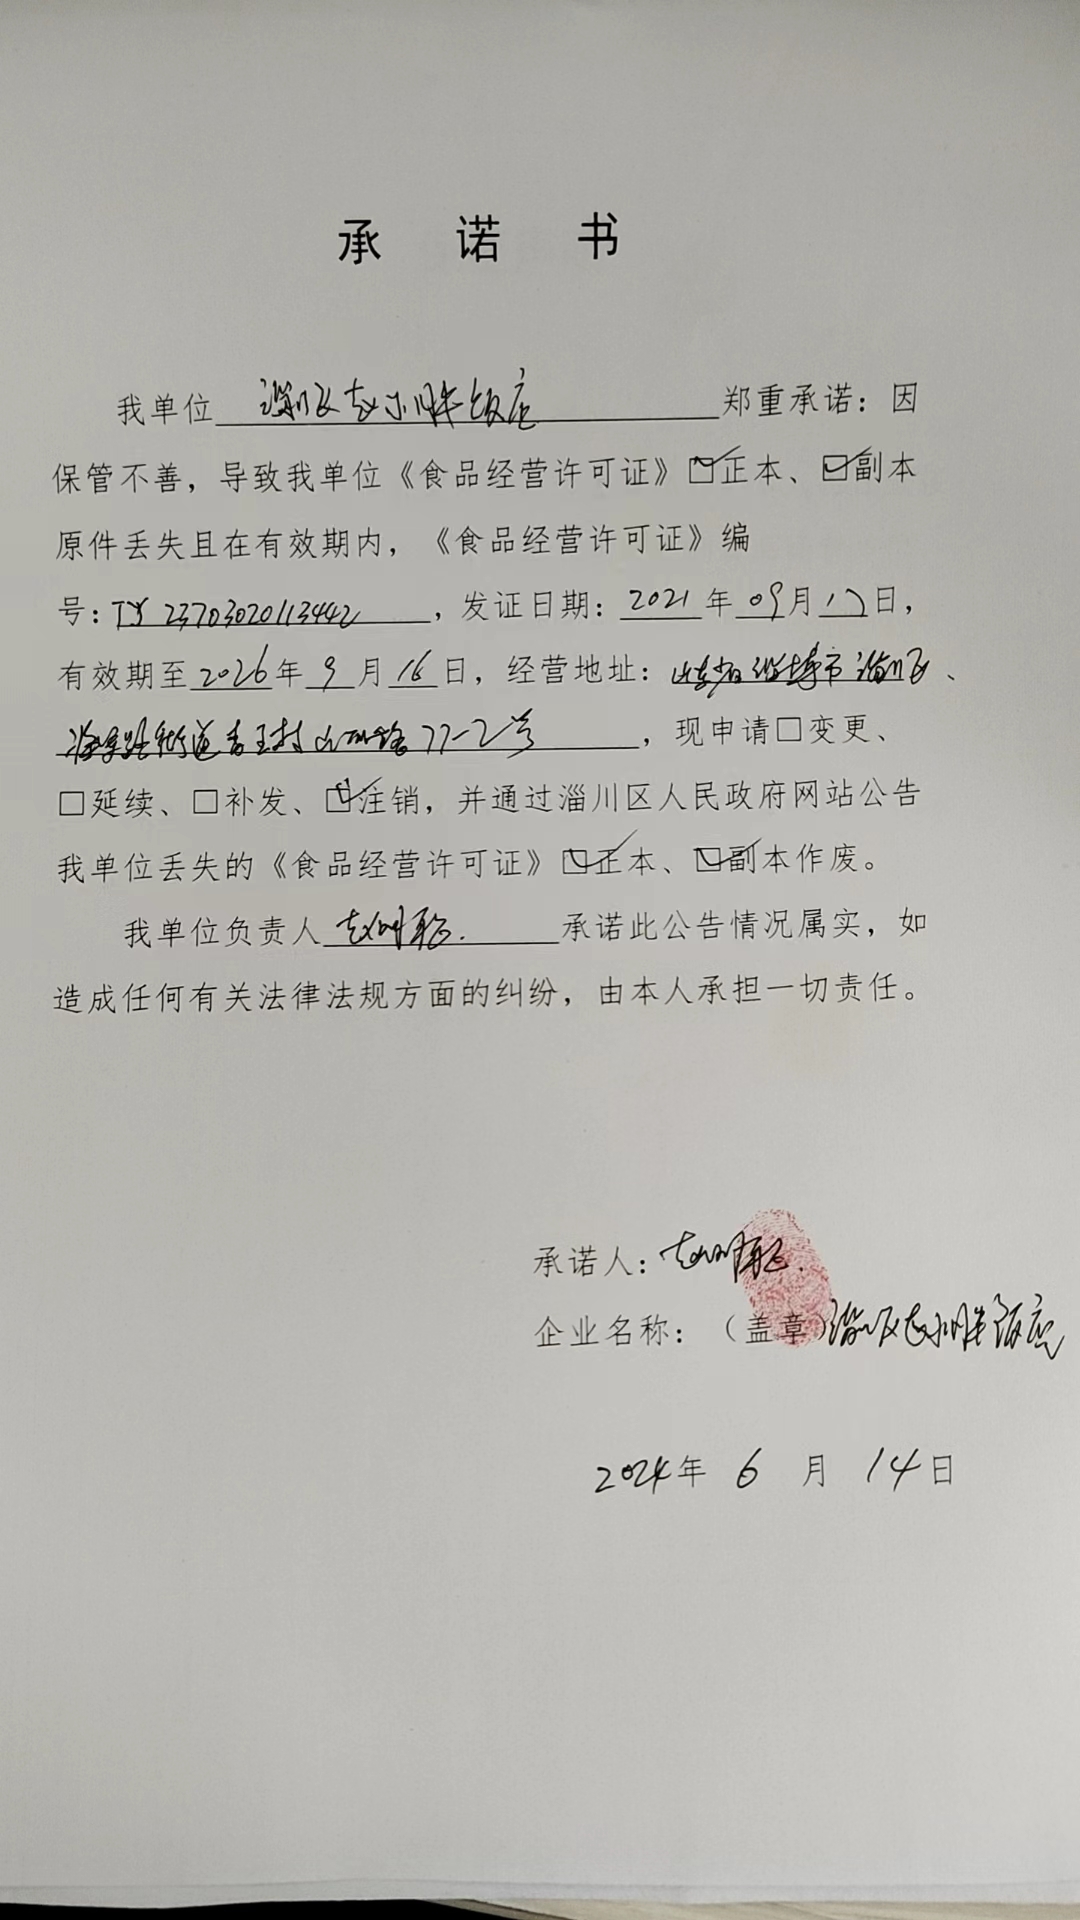 承诺书
我单位 淄川区赵小胖饭店 郑重承诺：因
保管不善，导致我单位《食品经营许可证》☑正本、☑副本
原件丢失且在有效期内，《食品经营许可证》编
号：JY23703020113442，发证日期：2021年09月17日，
有效期至2026年9月16日，经营地址：山东省淄博市淄川区、
街道 村 路77-2号，现申请□变更、
□延续、□补发、☑注销，并通过淄川区人民政府网站公告
我单位丢失的《食品经营许可证》☑正本、☑副本作废。
我单位负责人 赵 承诺此公告情况属实，如
造成任何有关法律法规方面的纠纷，由本人承担一切责任。
承诺人：赵
企业名称：（盖章）淄川区赵小胖饭店
2024年6月14日